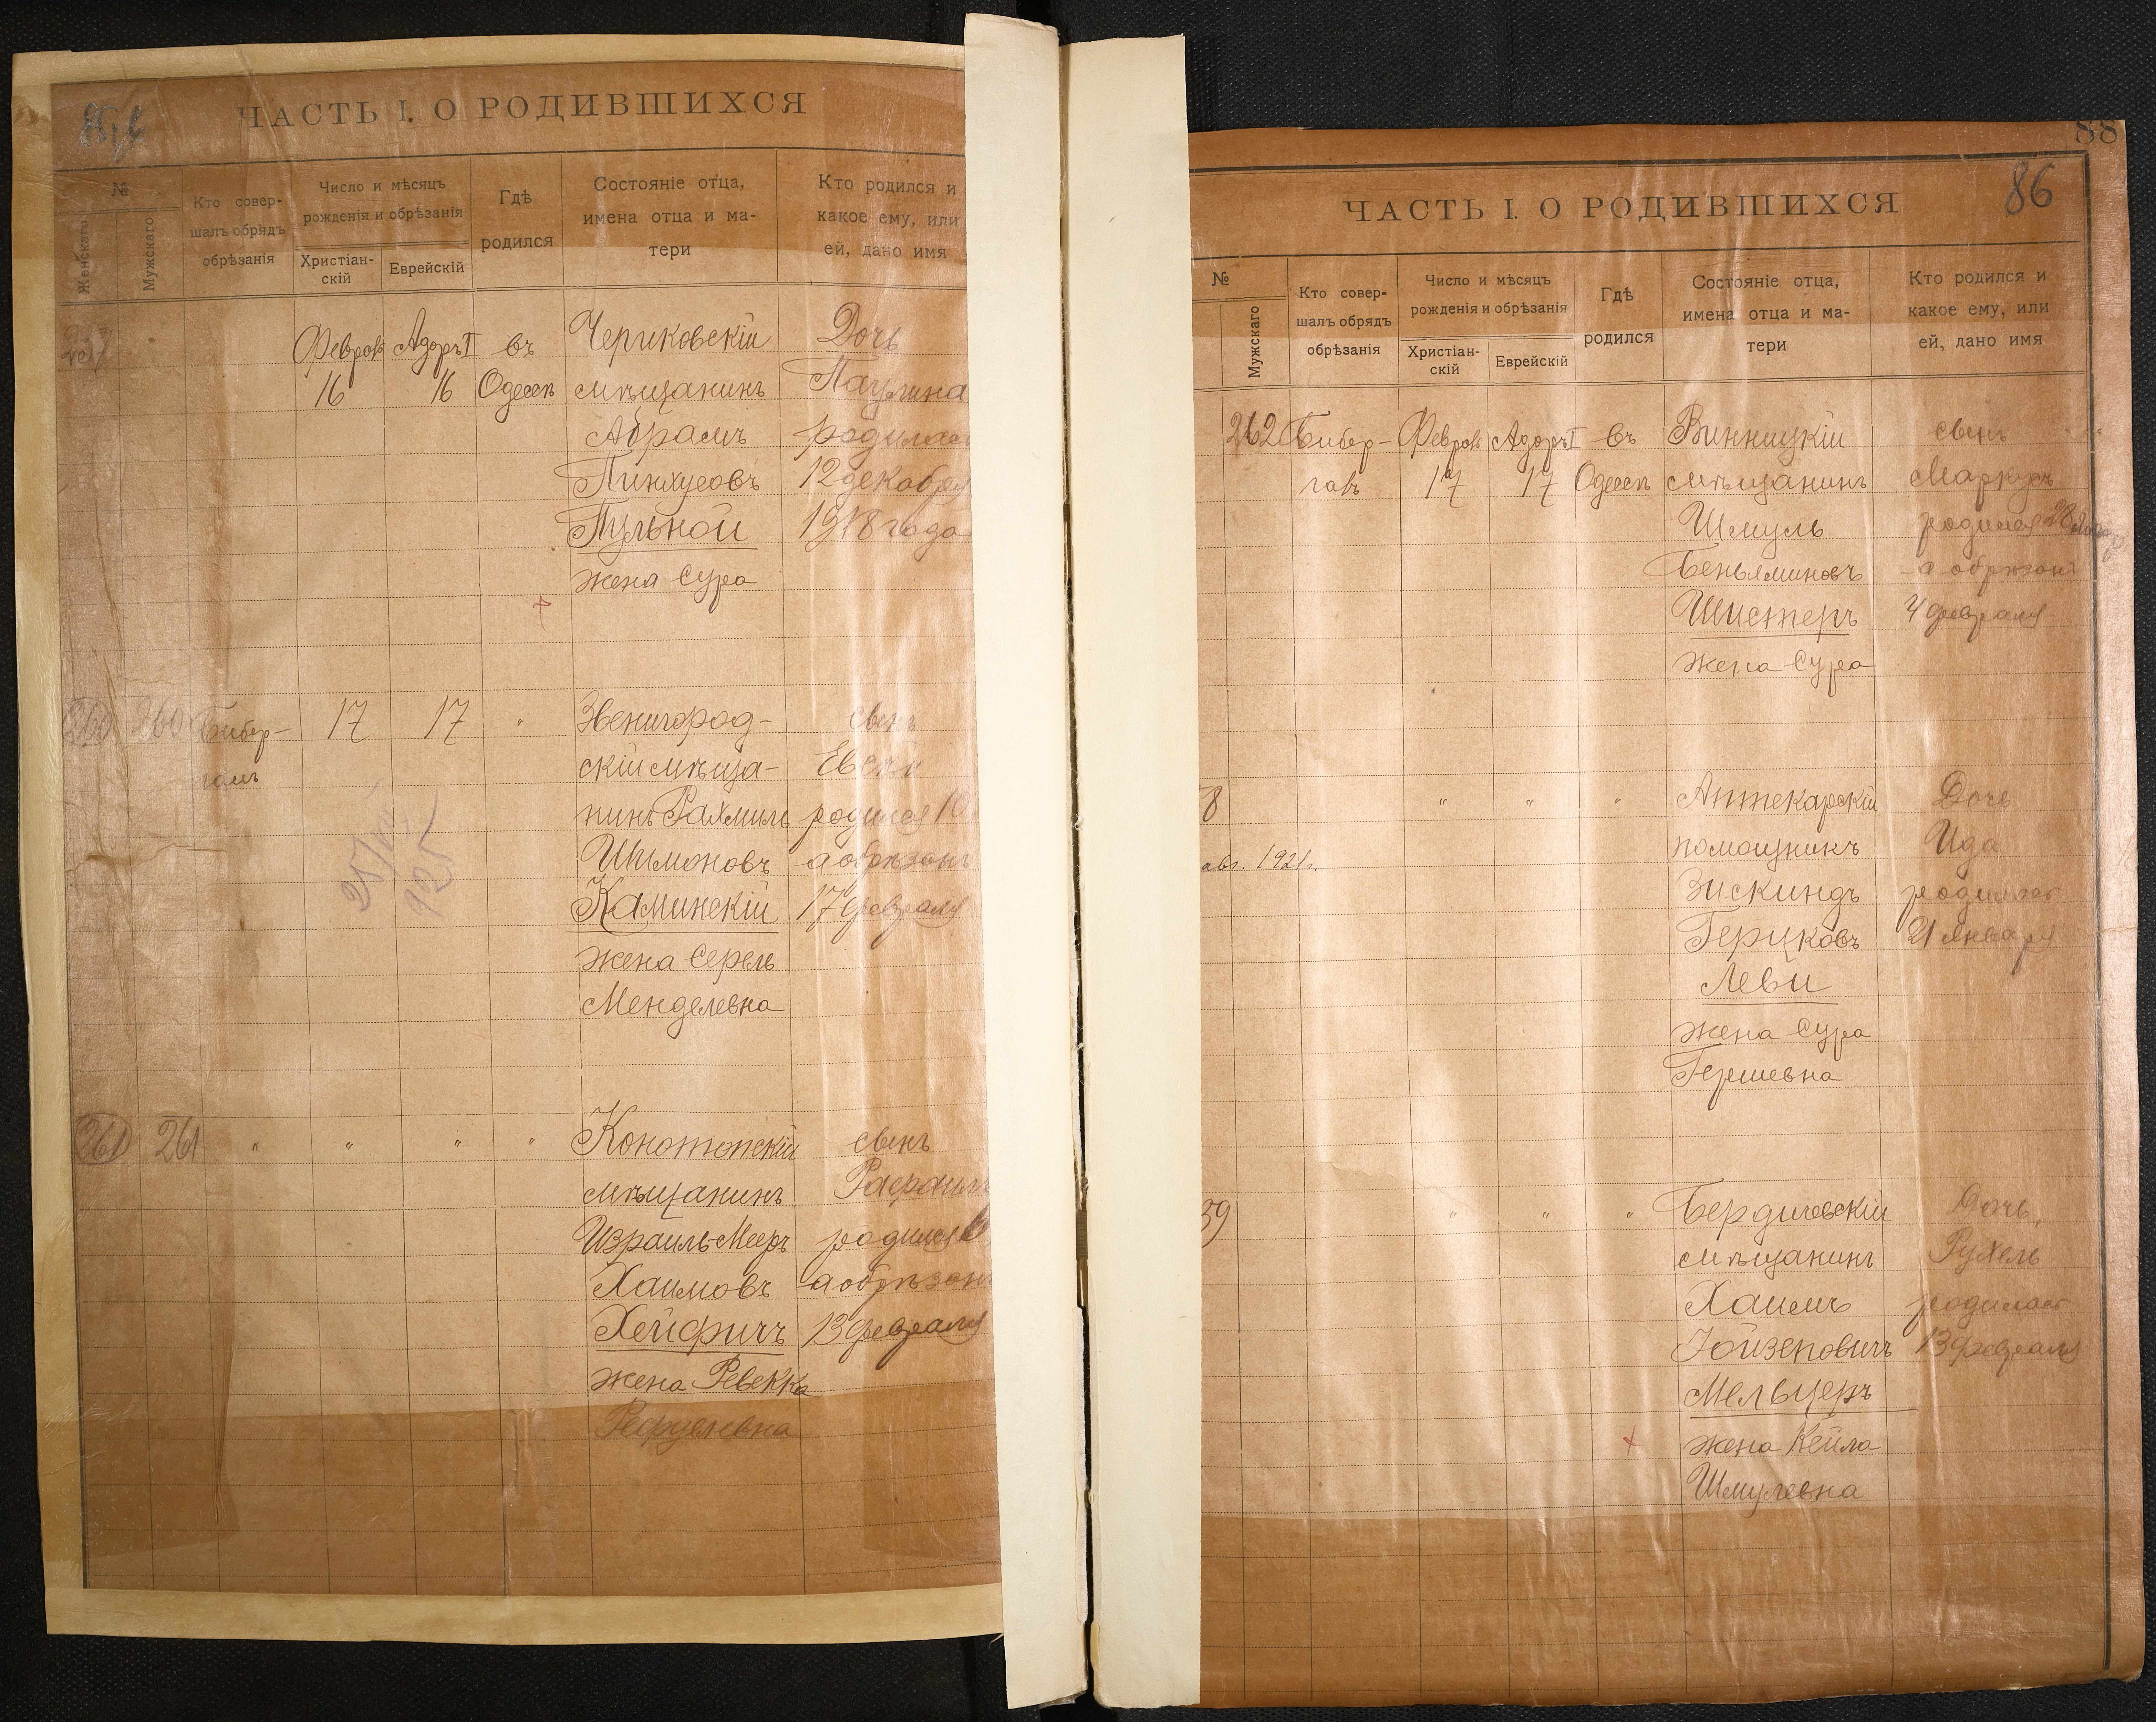 ЧАСТЬ I. О РОДИВШИХСЯ
№
Женскаго
Мужскаго
Кто совер-
шалъ обрядъ
обрѣзанія
Число и мѣсяцъ
рожденія и обрѣзанія
Христіан-
скій
Еврейскій
Гдѣ
родился
Состояніе отца,
имена отца и ма-
тери
Кто родился и
какое ему, или
ей, дано имя
Феврал
16
Адоръ I
16
въ
Одессѣ
Чериковскій
мѣщанинъ
Абрамъ
Пинхусовъ
Пульной
жена Сура
Дочь
Паулина
родилась
12 декабря
1918 года
260
260
Бибер-
галъ
17
17
"
Звенигород-
скій мѣща-
нинъ Рахмиль
Шимоновъ
Каминскій
жена Серель
Менделевна
сынъ
родился 10
а обрѣзанъ
17 февраля
925
261
261
"
"
"
"
Конотопскій
мѣщанинъ
Израиль Мееръ
Хаимовъ
Хейфичъ
жена Ревекка
сынъ
Рафаилъ
родился
а обрѣзанъ
13 февраля
88
86
ЧАСТЬ I. О РОДИВШИХСЯ
№
Мужскаго
Кто совер-
шалъ обрядъ
обрѣзанія
Число и мѣсяцъ
рожденія и обрѣзанія
Христіан-
скій
Еврейскій
Гдѣ
родился
Состояніе отца,
имена отца и ма-
тери
Кто родился и
какое ему, или
ей, дано имя
262
Бибер-
галъ
Феврал
17
Адоръ I
17
въ
Одессѣ
Винницкій
мѣщанинъ
Шмуль
Беньяминовъ
Шистеръ
жена Сура
сынъ
Маркусъ
родился 28
а обрѣзанъ
4 февраля
8
авг. 1921 г.
"
"
"
Аптекарскій
помощникъ
Зискиндъ
Герцковъ
Леви
жена Сура
Гершевна
Дочь
Ида
родилась
21 января
39
"
"
"
Бердичевскій
мѣщанинъ
Хаимъ
Іойзеповичъ
Мельцеръ
жена Кейла
Шмулевна
Дочь
Рухель
родилась
13 февраля